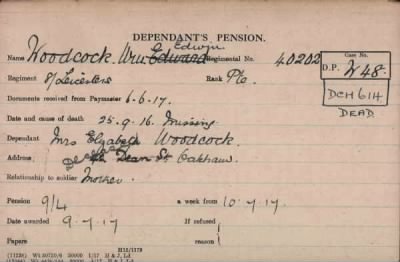 DEPENDANT'S PENSION.
Name Woodcock. Wm. Edward Edwin Regimental No. 40202
Case No.
D.P. W48.
Regiment 8/ Leicesters Rank Pte.
DCM 614
DEAD
Documents received from Paymaster 6-6-17.
Date and cause of death 25.9.16. Missing
Dependant Mrs Elizabeth Woodcock.
Address Dean St Oakham
Relationship to soldier Mother
Pension 9/4 a week from 10.7.17.
Date awarded 9-7-17 If refused
Papers reason
H15/1179